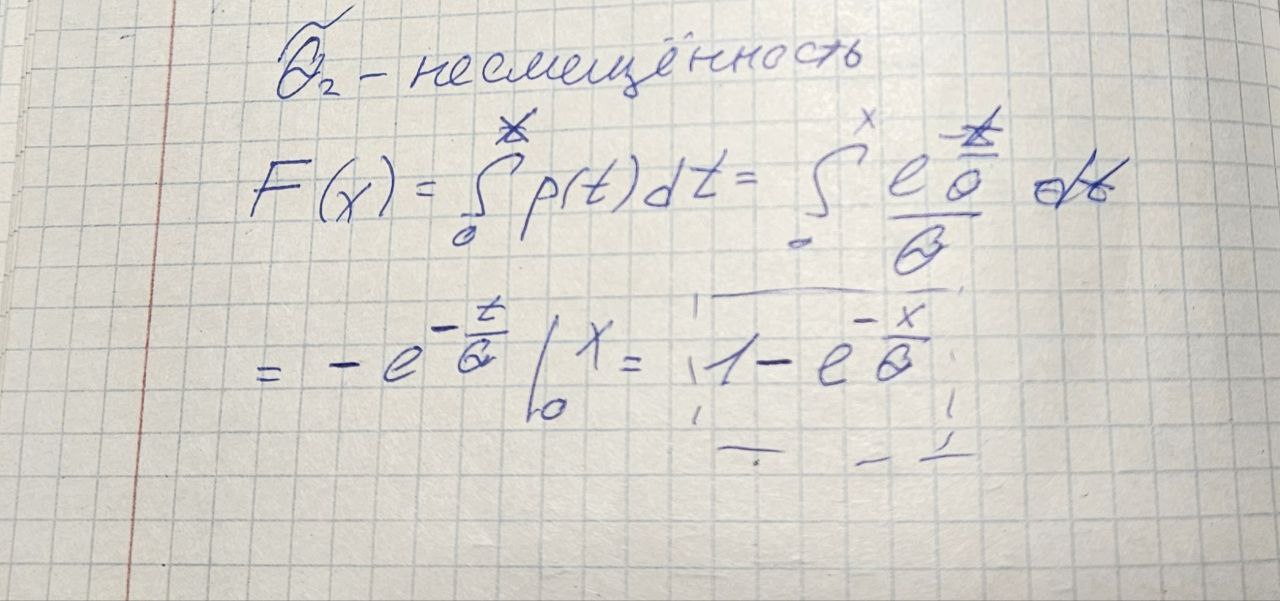 θ̃₂ – несмещённость
F(x) = ∫₀ˣ p(t)dt = ∫₀ˣ e^(-t/θ)/θ dt
= - e^(-t/θ) |₀ˣ = 1 - e^(-x/θ)